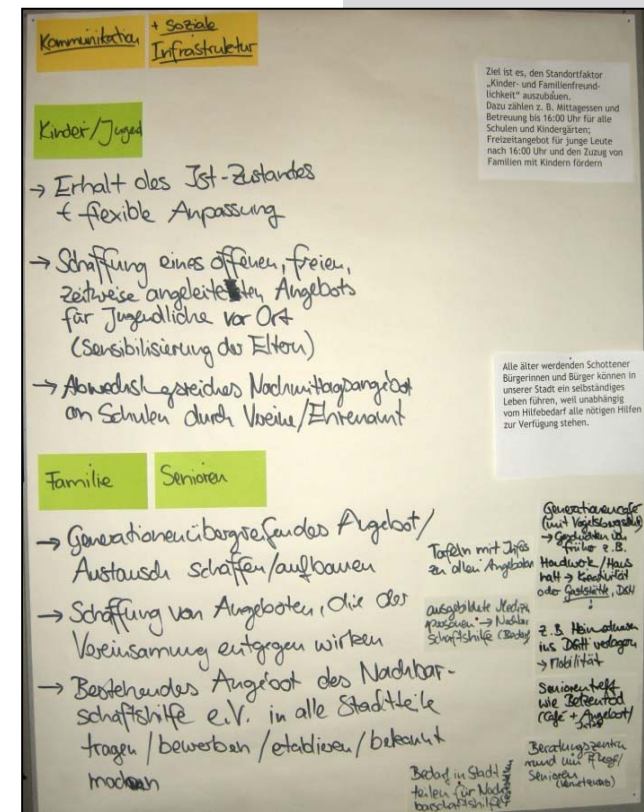 Kommunikation
+ Soziale
Infrastruktur
Ziel ist es, den Standortfaktor
„Kinder- und Familienfreund-
lichkeit“ auszubauen.
Dazu zählen z. B. Mittagessen und
Betreuung bis 16:00 Uhr für alle
Schulen und Kindergärten;
Freizeitangebot für junge Leute
nach 16:00 Uhr und den Zuzug von
Familien mit Kindern fördern
Kinder/Jugend
→ Erhalt des Ist-Zustandes
+ flexible Anpassung
→ Schaffung eines offenen, freien,
zeitweise angeleiteten Angebots
für Jugendliche vor Ort
(Sensibilisierung der Eltern)
→ Abwechslungsreiches Nachmittagsangebot
an Schulen durch Vereine/Ehrenamt
Alle älter werdenden Schottener
Bürgerinnen und Bürger können in
unserer Stadt ein selbständiges
Leben führen, weil unabhängig
vom Hilfebedarf alle nötigen Hilfen
zur Verfügung stehen.
Familie
Senioren
→ Generationenübergreifendes Angebot/
Austausch schaffen/aufbauen
→ Schaffung von Angeboten, die der
Vereinsamung entgegen wirken
→ Bestehendes Angebot des Nachbar-
schaftshilfe e.V. in alle Stadtteile
tragen/bewerben/etablieren/bekannt
machen
Tafeln mit Infos
zu allen Angeboten
ausgebildete
personen → Nachbar
schaftshilfe (Bedarf)
Bedarf in Stadt
teilen für Nach
barschaftshilfe
Generationencafé
(mit
→ Geschichten von
früher z.B.
Handwerk/Haus
halt → Kreativität
oder Gaststätte, DGH
z.B.
ins DGH verlagern
→ Mobilität
Seniorentreff
wie Betzenrod
(Café + Angebot/
Beratungszentrum
rund um Pflege/
Senioren